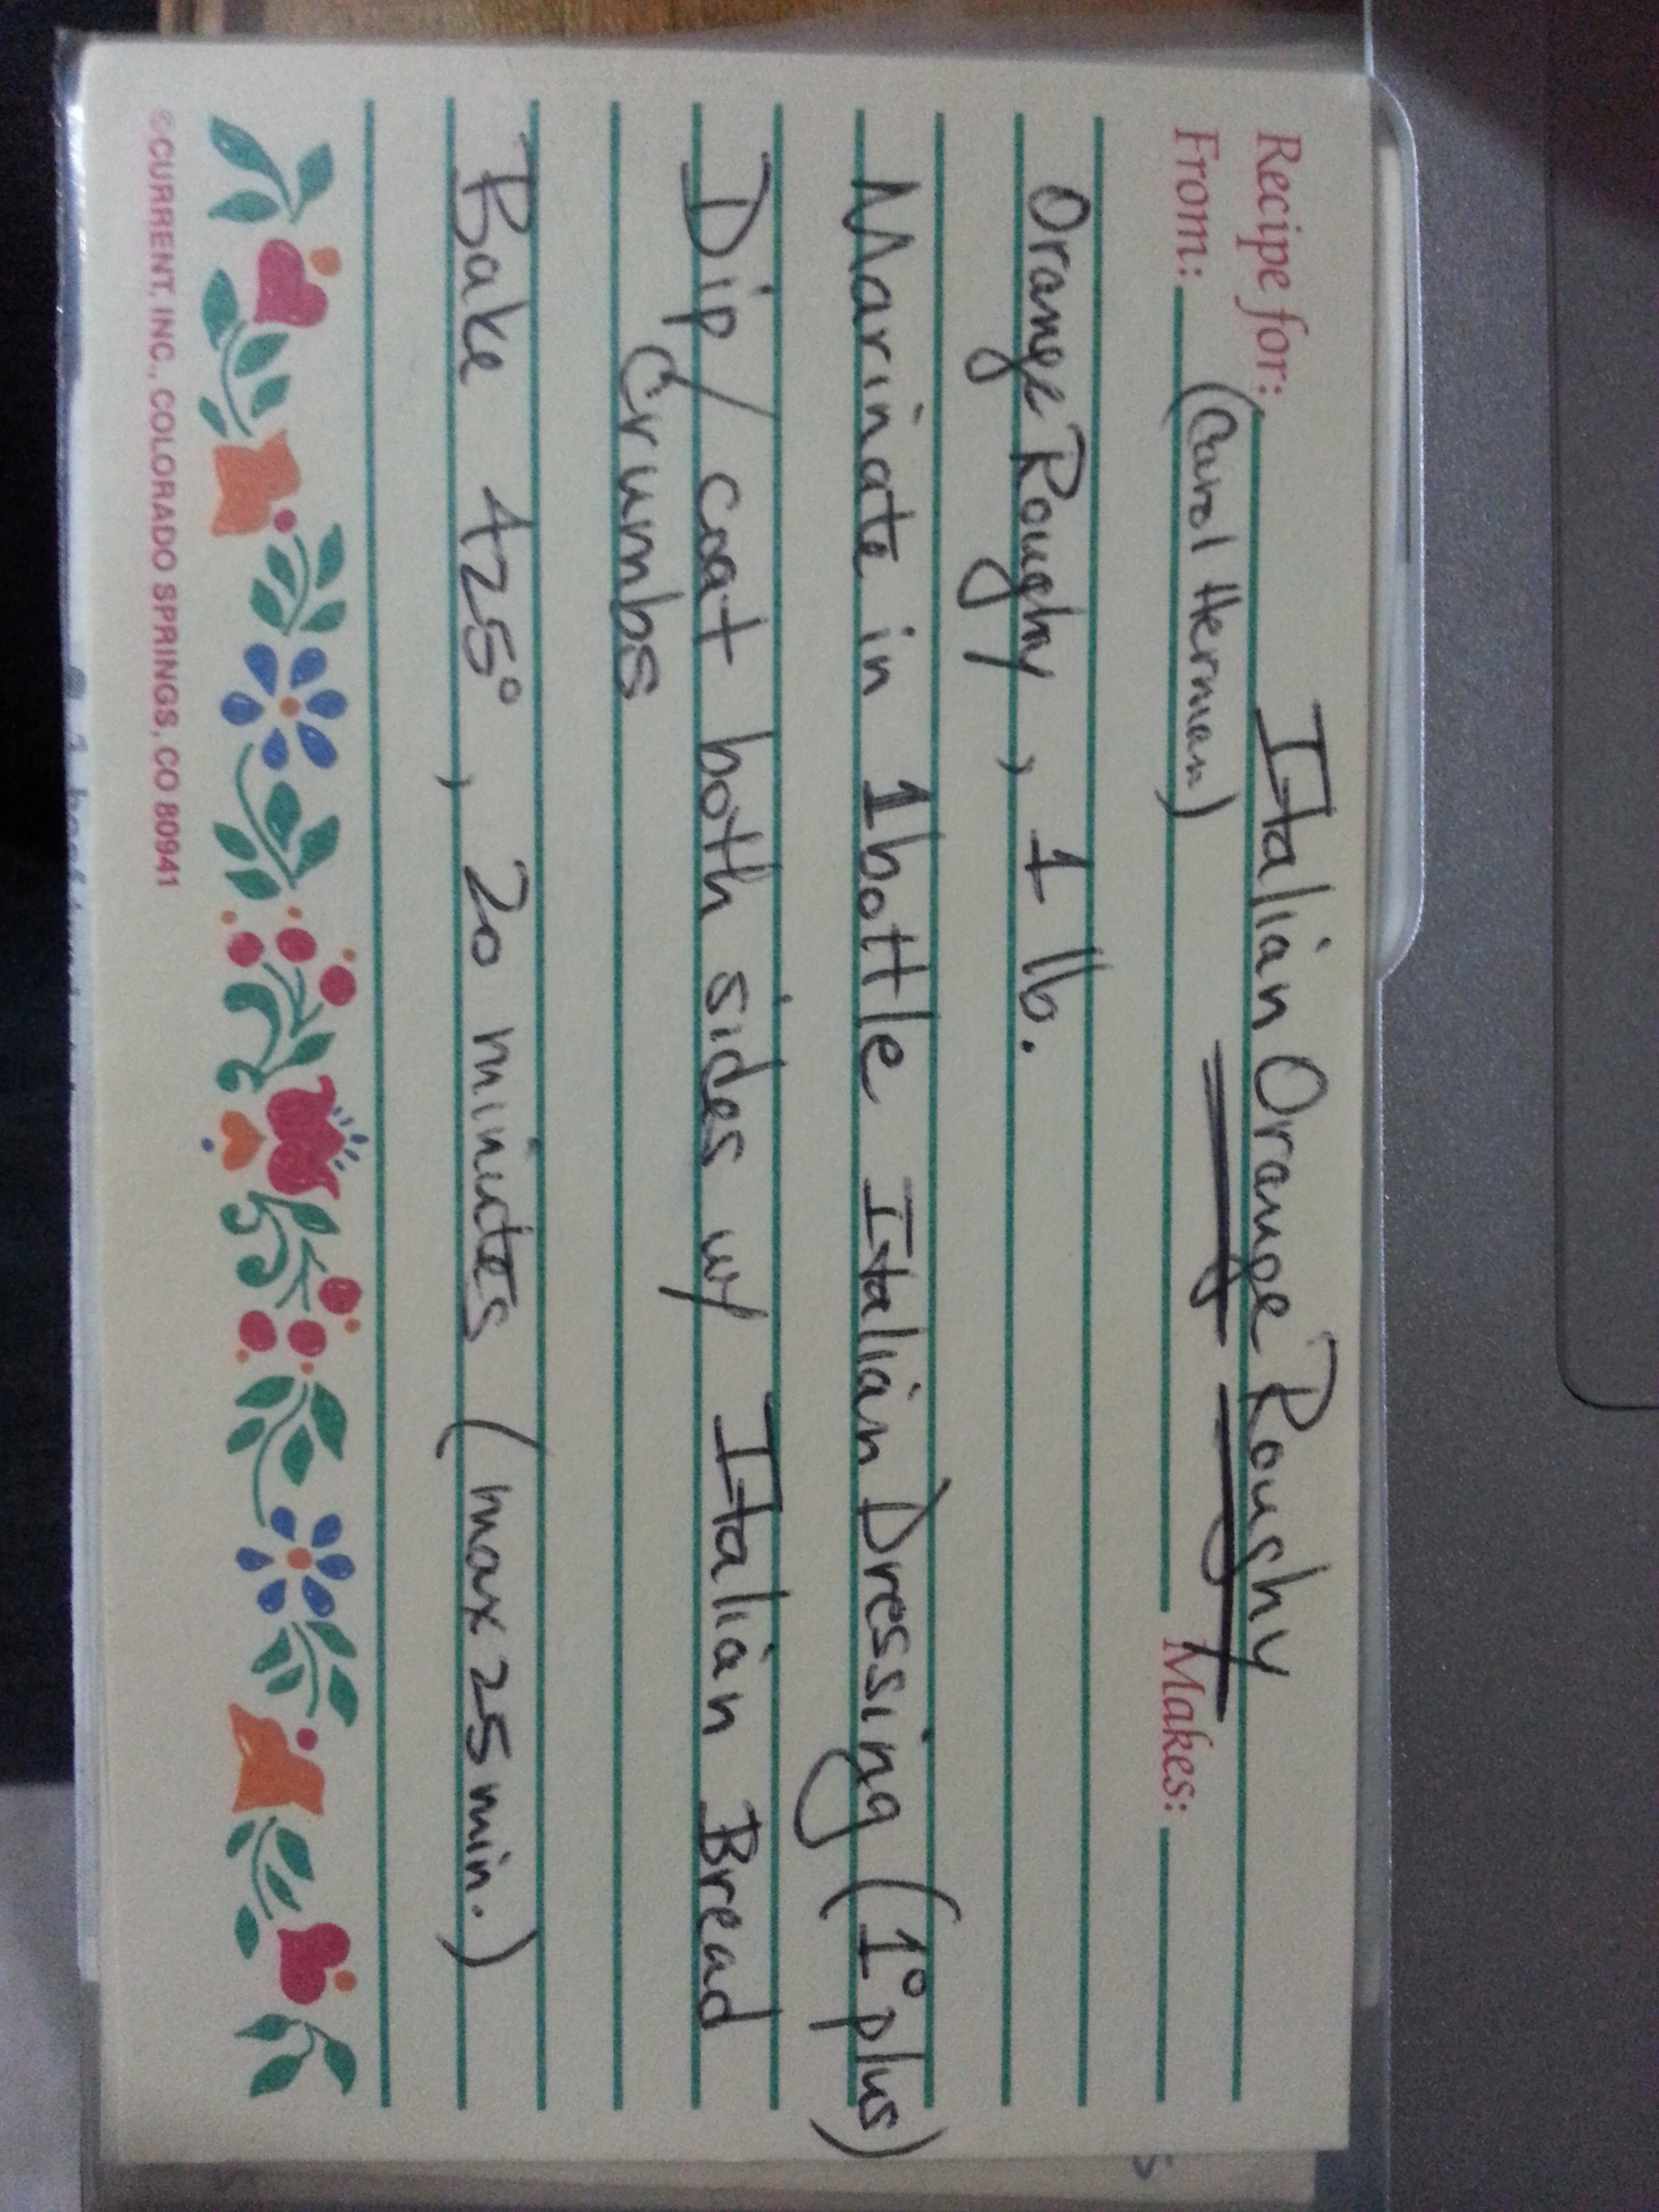 Recipe for: Italian Orange Roughy
From: (Carol Herman) Makes:
Orange Roughy, 1 lb.
Marinate in 1 bottle Italian Dressing (1° plus)
Dip/ coat both sides w/ Italian Bread
Crumbs
Bake 425°, 20 minutes (max 25 min.)
©CURRENT, INC., COLORADO SPRINGS, CO 80941